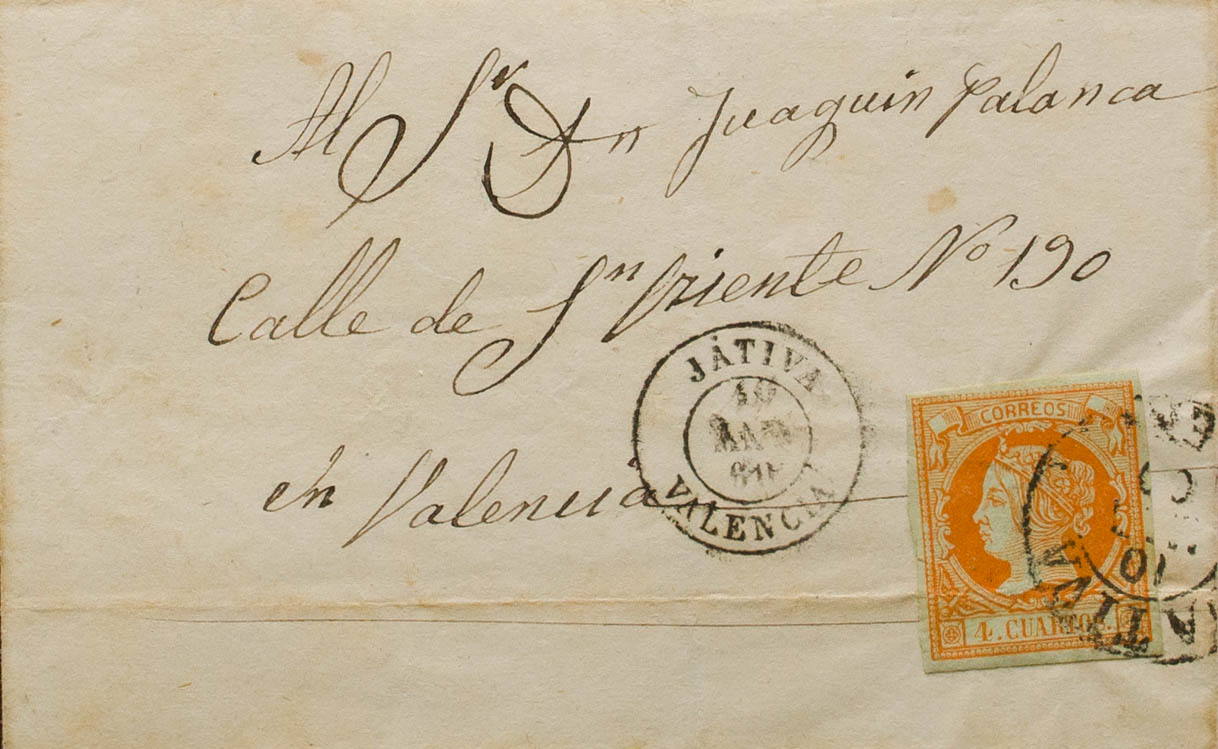 Al Sr Dn Juaquin Palanca
Calle de Sn Viziente No 190
en Valencia
JÁTIVA
10
60
VALENCIA
CORREOS
4. CUARTOS.
10